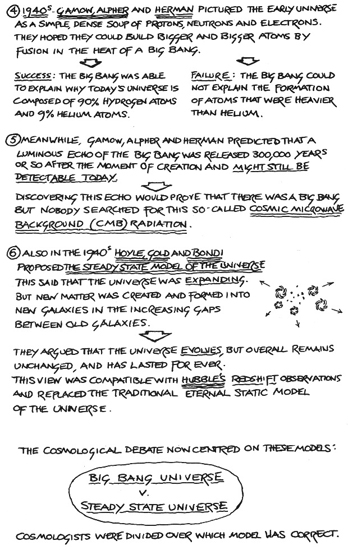 ④ 1940s. GAMOW, ALPHER AND HERMAN PICTURED THE EARLY UNIVERSE
AS A SIMPLE, DENSE SOUP OF PROTONS, NEUTRONS AND ELECTRONS.
THEY HOPED THEY COULD BUILD BIGGER AND BIGGER ATOMS BY
FUSION IN THE HEAT OF A BIG BANG.
SUCCESS: THE BIG BANG WAS ABLE
TO EXPLAIN WHY TODAY'S UNIVERSE IS
COMPOSED OF 90% HYDROGEN ATOMS
AND 9% HELIUM ATOMS.
FAILURE: THE BIG BANG COULD
NOT EXPLAIN THE FORMATION
OF ATOMS THAT WERE HEAVIER
THAN HELIUM.
⑤ MEANWHILE, GAMOW, ALPHER AND HERMAN PREDICTED THAT A
LUMINOUS ECHO OF THE BIG BANG WAS RELEASED 300,000 YEARS
OR SO AFTER THE MOMENT OF CREATION AND MIGHT STILL BE
DETECTABLE TODAY.
DISCOVERING THIS ECHO WOULD PROVE THAT THERE WAS A BIG BANG
BUT NOBODY SEARCHED FOR THIS SO-CALLED COSMIC MICROWAVE
BACKGROUND (CMB) RADIATION.
⑥ ALSO IN THE 1940s HOYLE, GOLD AND BONDI
PROPOSED THE STEADY STATE MODEL OF THE UNIVERSE
THIS SAID THAT THE UNIVERSE WAS EXPANDING.
BUT NEW MATTER WAS CREATED AND FORMED INTO
NEW GALAXIES IN THE INCREASING GAPS
BETWEEN OLD GALAXIES.
THEY ARGUED THAT THE UNIVERSE EVOLVES, BUT OVERALL REMAINS
UNCHANGED, AND HAS LASTED FOR EVER.
THIS VIEW WAS COMPATIBLE WITH HUBBLE'S REDSHIFT OBSERVATIONS
AND REPLACED THE TRADITIONAL ETERNAL STATIC MODEL
OF THE UNIVERSE.
THE COSMOLOGICAL DEBATE NOW CENTRED ON THESE MODELS:
BIG BANG UNIVERSE
V.
STEADY STATE UNIVERSE
COSMOLOGISTS WERE DIVIDED OVER WHICH MODEL WAS CORRECT.